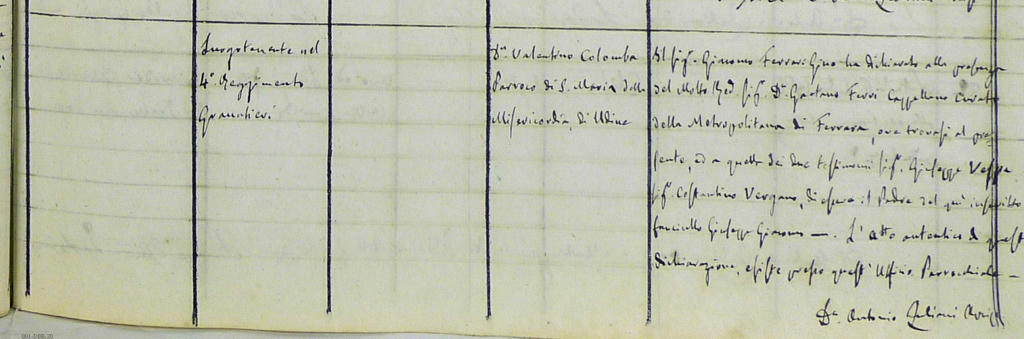 Luogotenente nel
4º Reggimento
Granatieri
Dn. Valentino Colomba
Parroco di S. Maria della
Misericordia, di Udine
Il Sigr. Giacomo Ferrari Gino ha dichiarato alla presenza
del Molto Red. Sigr. Dn. Gaetano Ferri Cappellano Curato
della Metropolitana di Ferrara, ove trovasi al pre-
sente, ed a quella dei due testimonii Sigr. Giuseppe Vespa
Sigr. Costantino Vergano, di essere il Padre del quì inscritto
fanciullo Giuseppe Giacomo —. L'atto autentico di questa
dichiarazione, esiste presso quest'Ufficio Parrocchiale —
Dn. Antonio
001-DRB-20